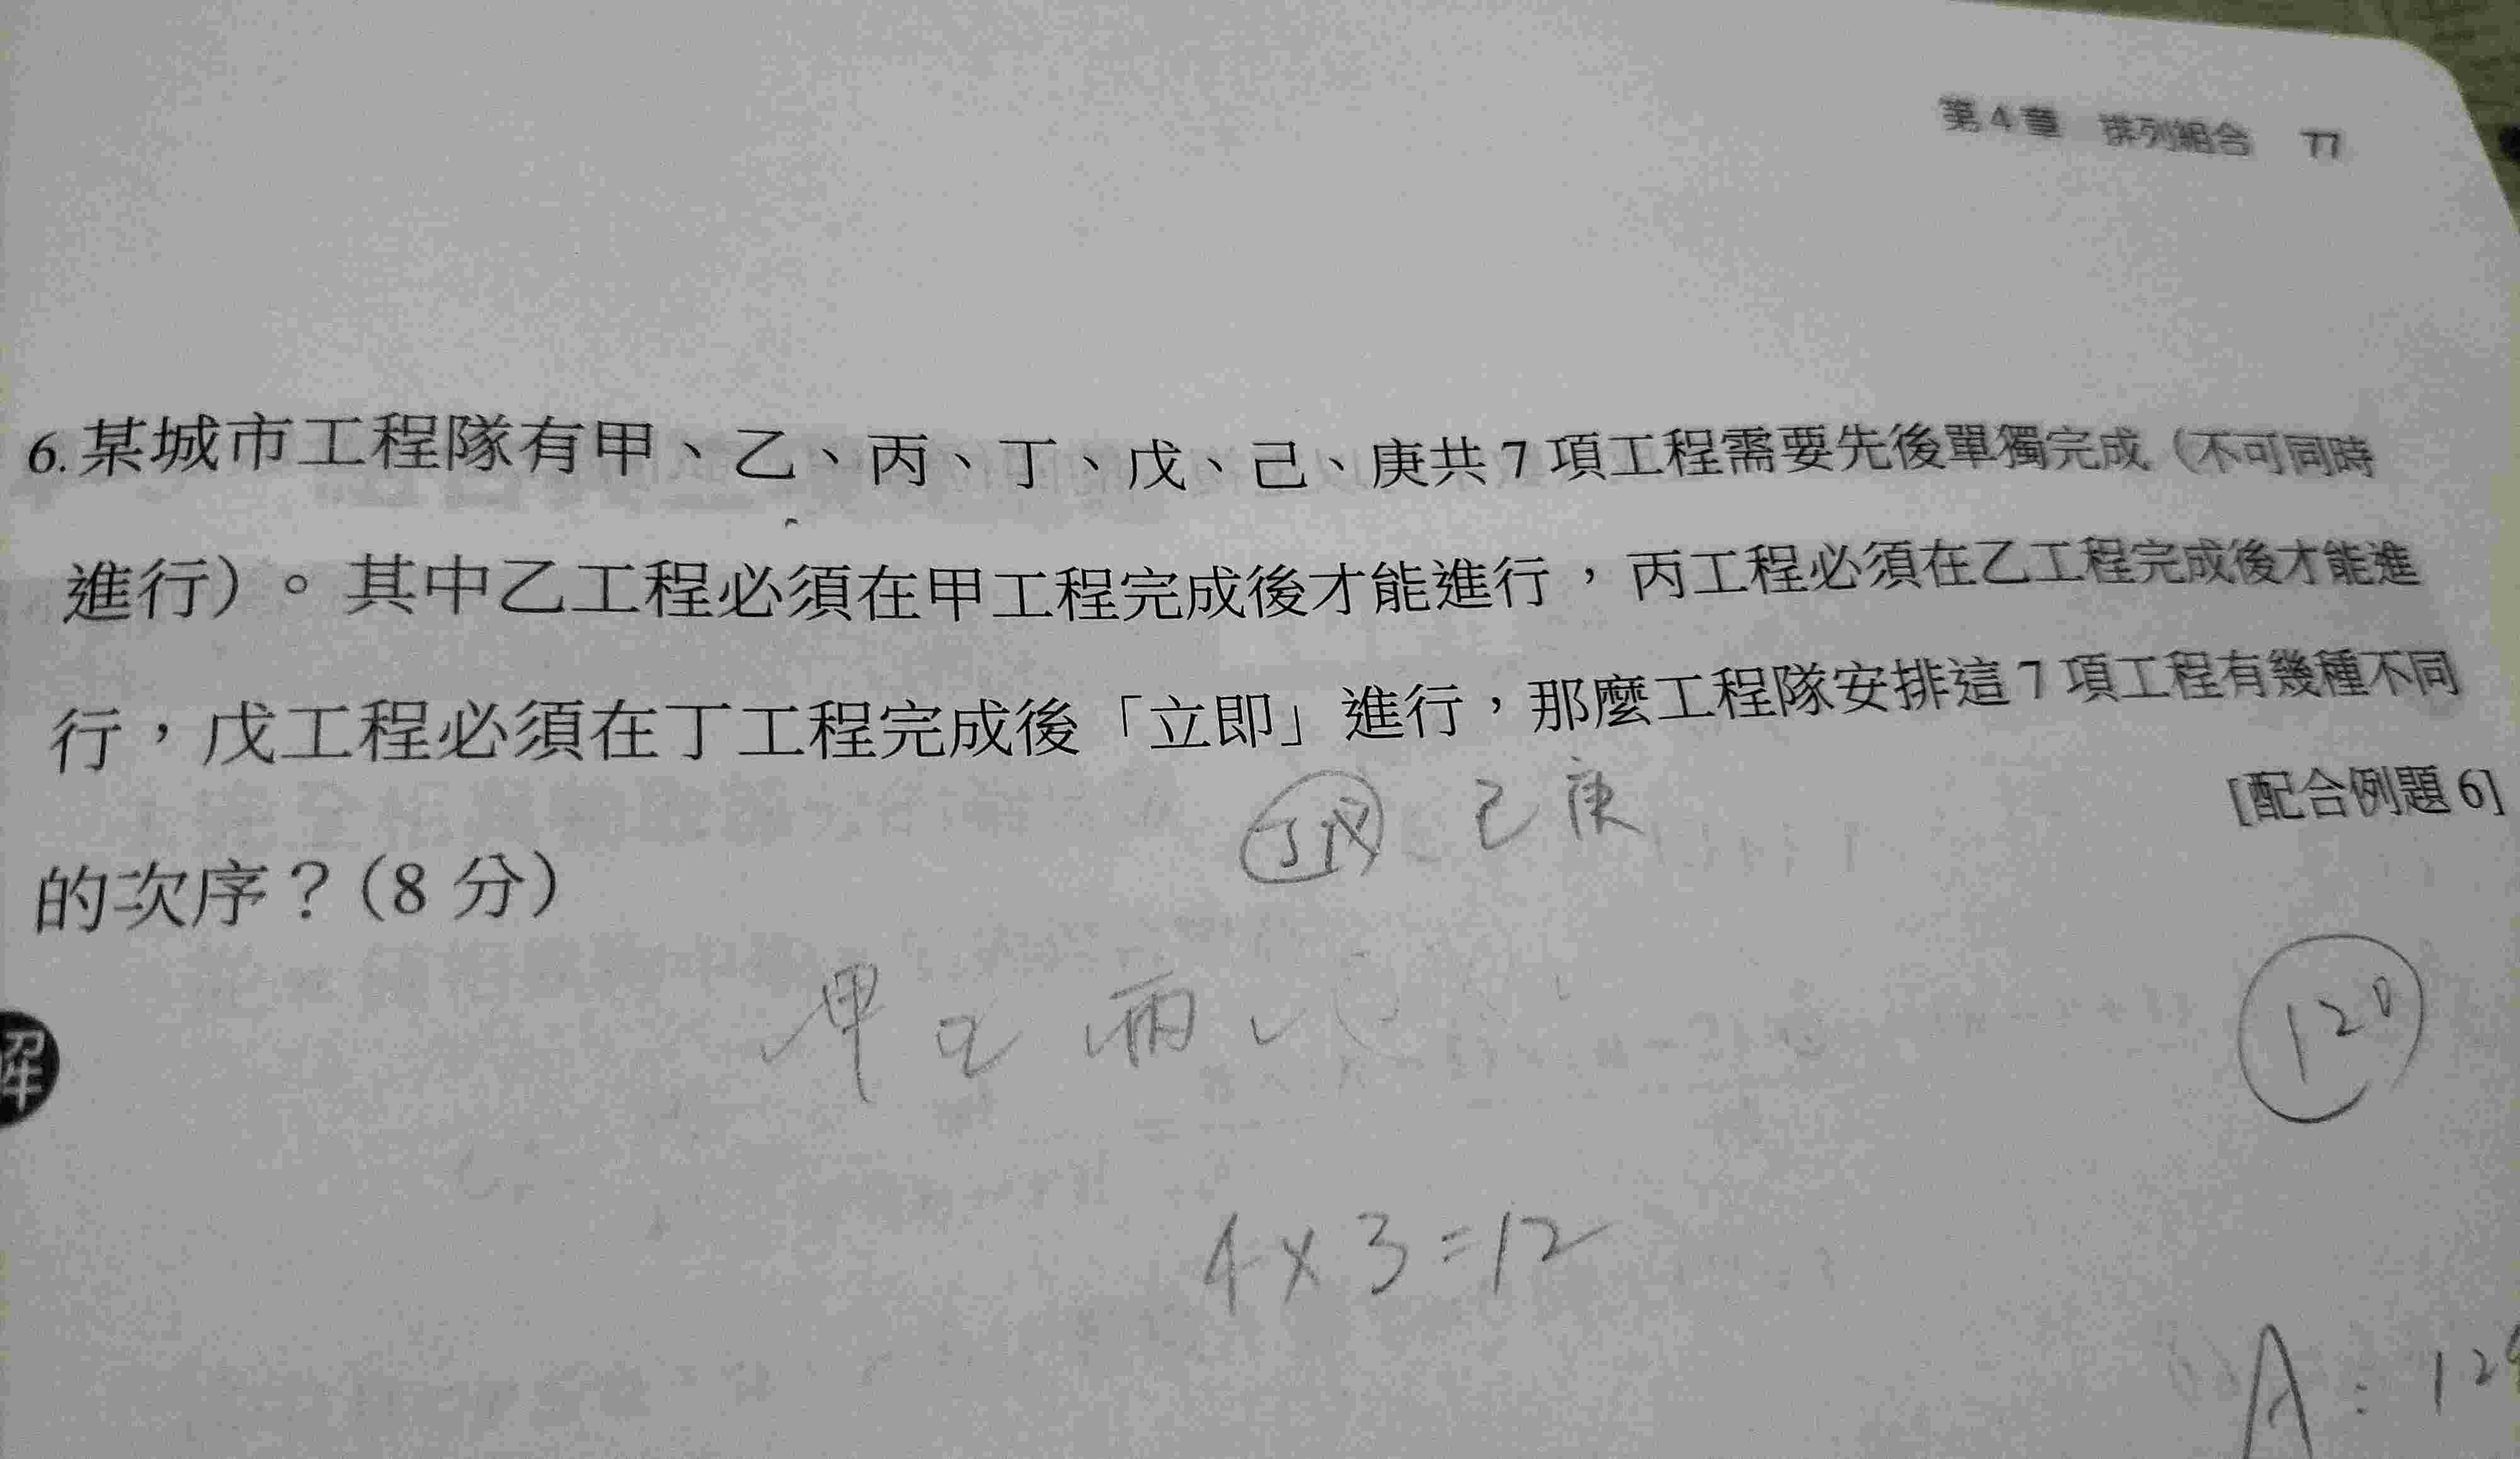 第4章 排列組合 77
6.某城市工程隊有甲、乙、丙、丁、戊、己、庚共7項工程需要先後單獨完成(不可同時
進行)。其中乙工程必須在甲工程完成後才能進行,丙工程必須在乙工程完成後才能進
行,戊工程必須在丁工程完成後「立即」進行,那麼工程隊安排這7項工程有幾種不同
的次序?(8分)
[配合例題6]
丁戊 己 庚
甲 乙 丙
120
解
4×3=12
A:12